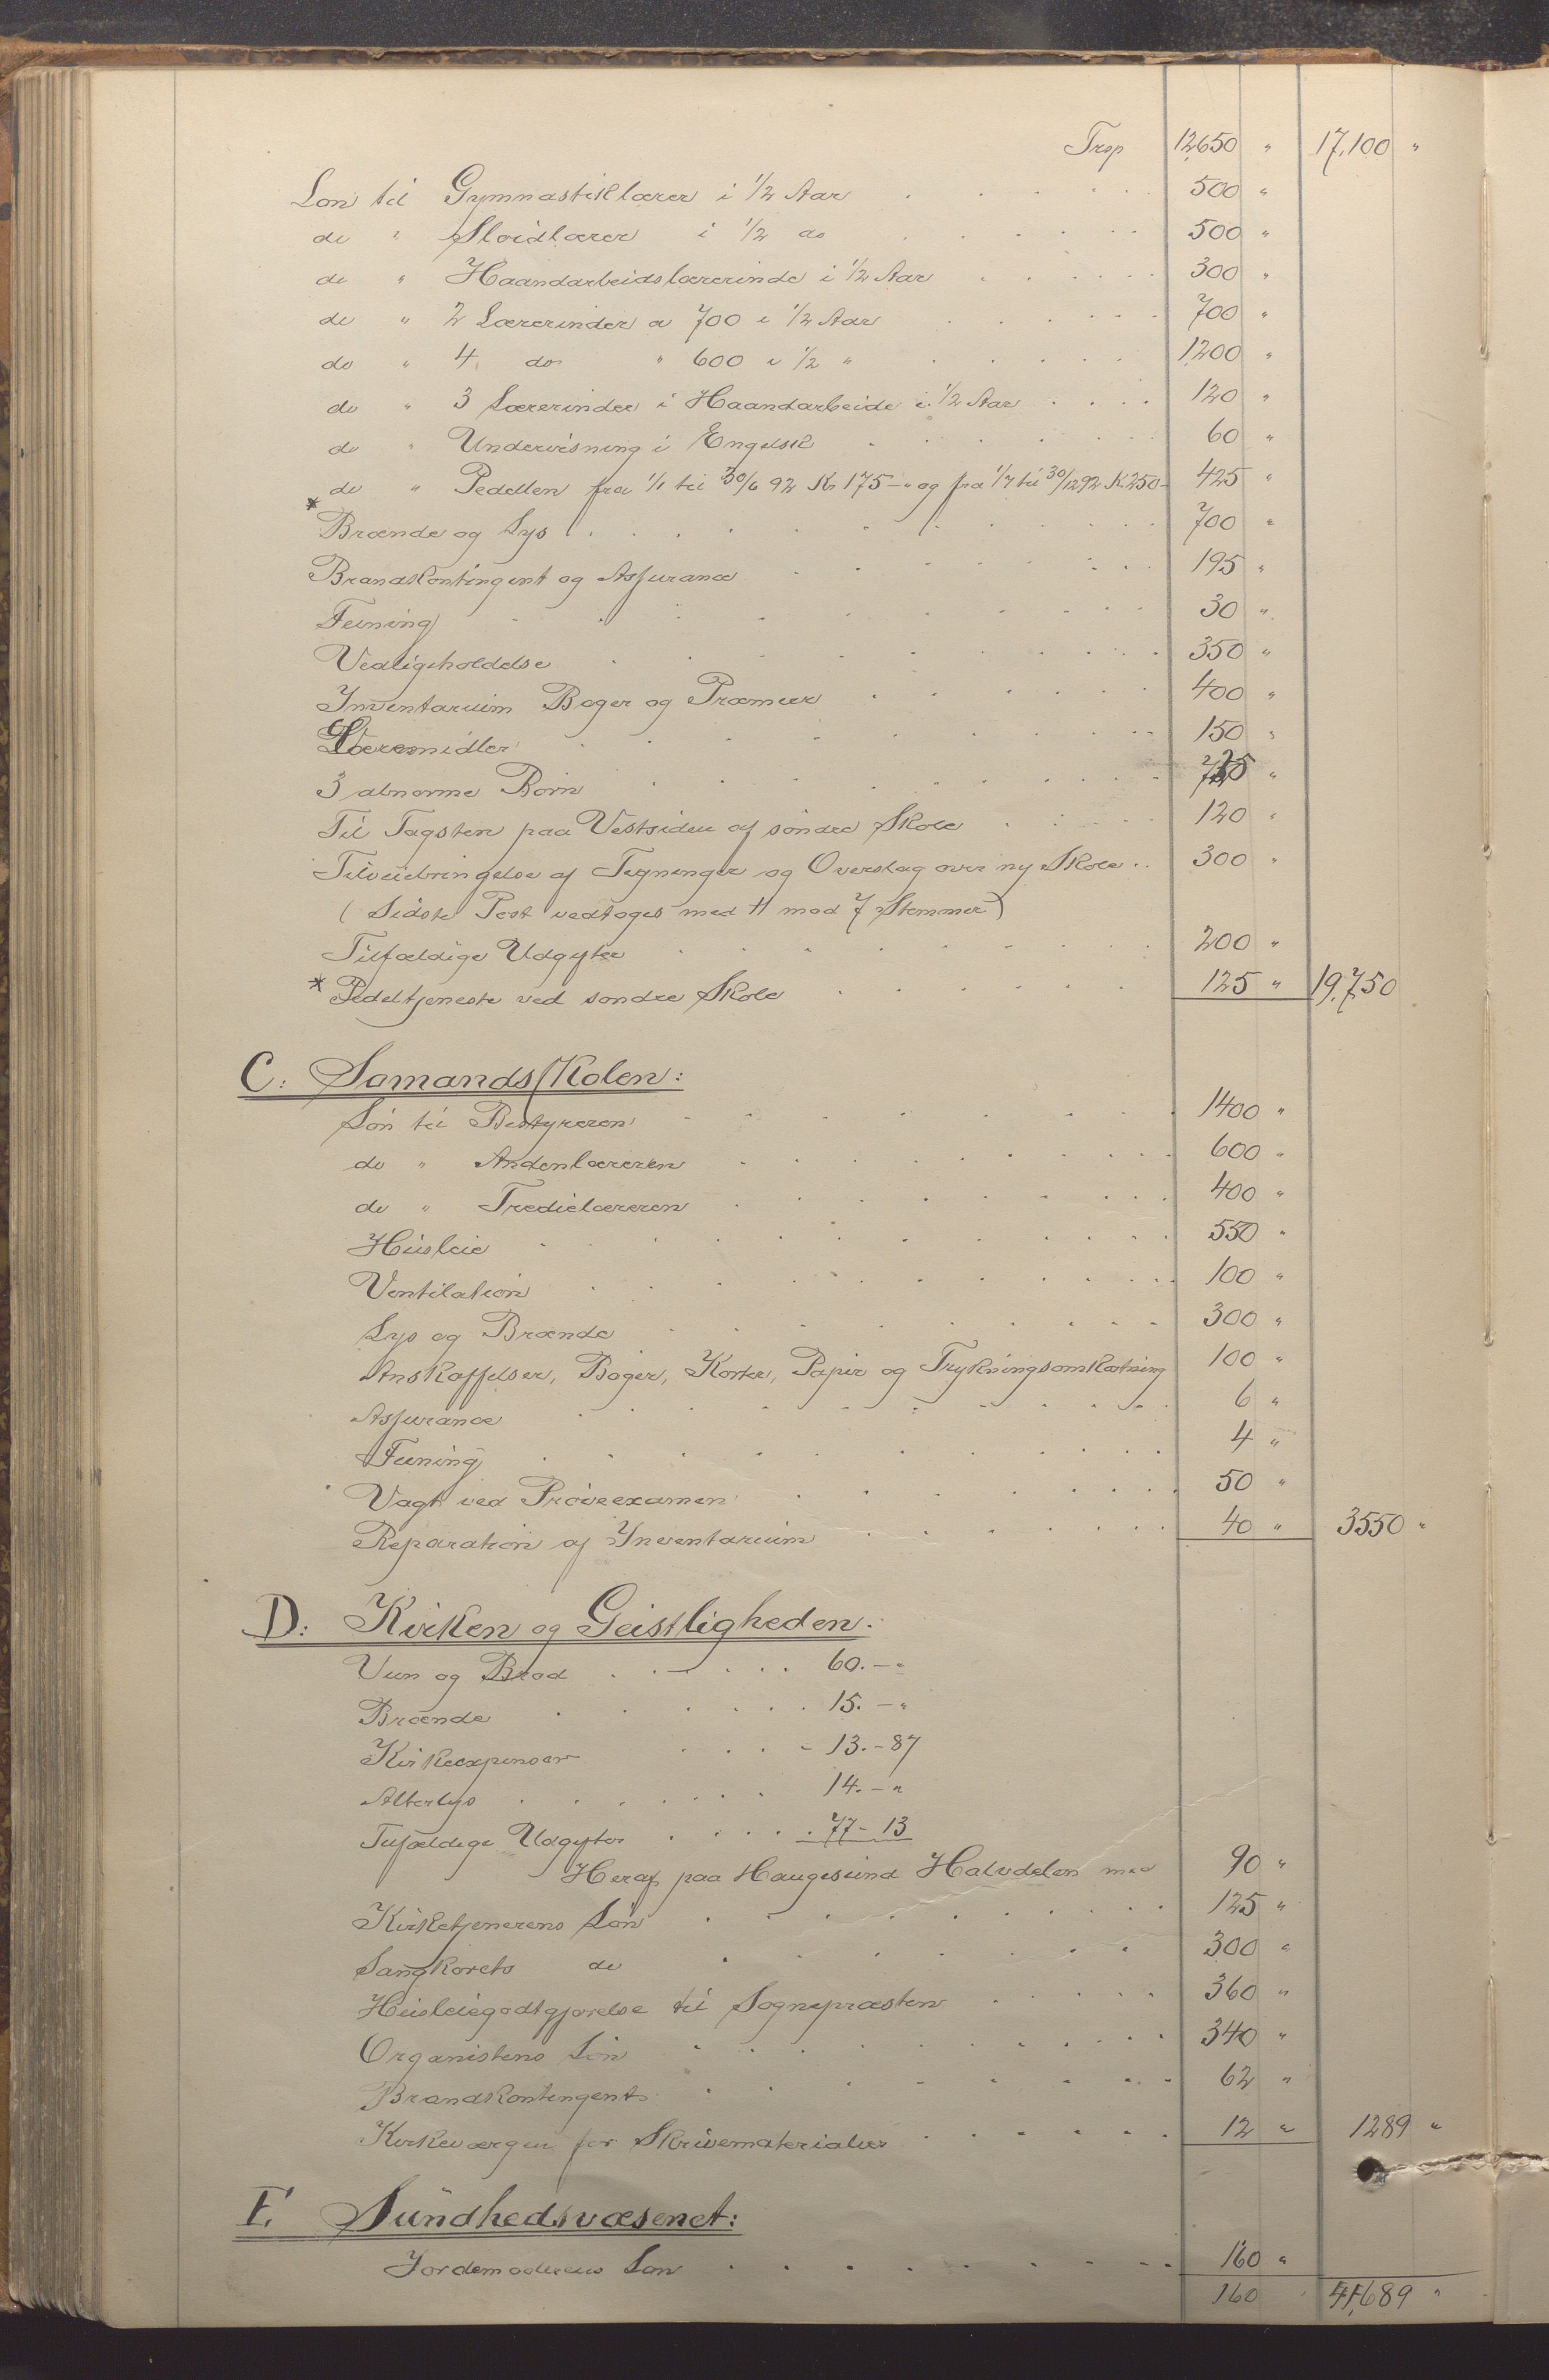 Trsp 12650 " 17,100 "
Løn til Gymnastiklærer i 1/2 Aar . . . . . 500 "
do " Sløidlærer i 1/2 do . . . . . 500 "
do " Haandarbeidslærerinde i 1/2 Aar . . . . . 300 "
do " 2 Lærerinder a 700 i 1/2 Aar . . . . . 700 "
do " 4 do " 600 i 1/2 " . . . . . 1200 "
do " 3 Lærerinder i Haandarbeide i 1/2 Aar . . . . 120 "
do " Undervisning i Engelsk . . . . . 60 "
do " Pedellen fra 1/1 til 30/6 92 Kr 175 - " og fra 1/7 til 30/12 92 K 250 - 425 "
* Brænde og Lys . . . . . 700 "
Brandkontingent og Assurance . . . . . 195 "
Feining . . . . . 30 "
Vedligeholdelse . . . . . 350 "
Inventarium Bøger og Præmier . . . . . 400 "
Læremidler . . . . . 150 "
3 abnorme Børn . . . . . 725 "
Til Tagsten paa Vestsiden af søndre Skole . . . . . 120 "
Tilveiebringelse af Tegninger og Overslag over ny Skole . . 300 "
(Sidste Post vedtoges med 11 mod 7 Stemmer)
Tilfældige Udgifter . . . . . 200 "
* Pedeltjeneste ved søndre Skole . . . . . 125 " 19,750
C: Sømandsskolen:
Løn til Bestyreren . . . . . 1400 "
do " Andenlæreren . . . . . 600 "
do " Tredielæreren . . . . . 400 "
Husleie . . . . . 550 "
Ventilation . . . . . 100 "
Lys og Brænde . . . . . 300 "
Anskaffelser, Bøger, Karter, Papir og Trykningsomkostning 100 "
Assurance . . . . . 6 "
Feining . . . . . 4 "
Vagt ved Prøveexamen . . . . . 50 "
Reparation af Inventarium . . . . . 40 " 3550 "
D: Kirken og Geistligheden.
Viin og Brød . . . . . 60. - "
Brænde . . . . . 15. - "
Kirkeexpenser . . . . 13. - 87
Alterlys . . . . . 14. - "
Tilfældige Udgifter . . . . . 77 - 13
Heraf paa Haugesund Halvdelen med 90 "
Kirketjenerens Løn . . . . . 125 "
Sangkorets do . . . . . 300 "
Husleiegodtgjørelse til Sognepræsten . . . . . 360 "
Organistens Løn . . . . . 340 "
Brandkontingent . . . . . 62 "
Kirkeværgen for Skrivematerialier . . . . . 12 " 1289 "
E. Sundhedsvæsenet:
Jordemoderens Løn . . . . . 160 "
160 41,689 "